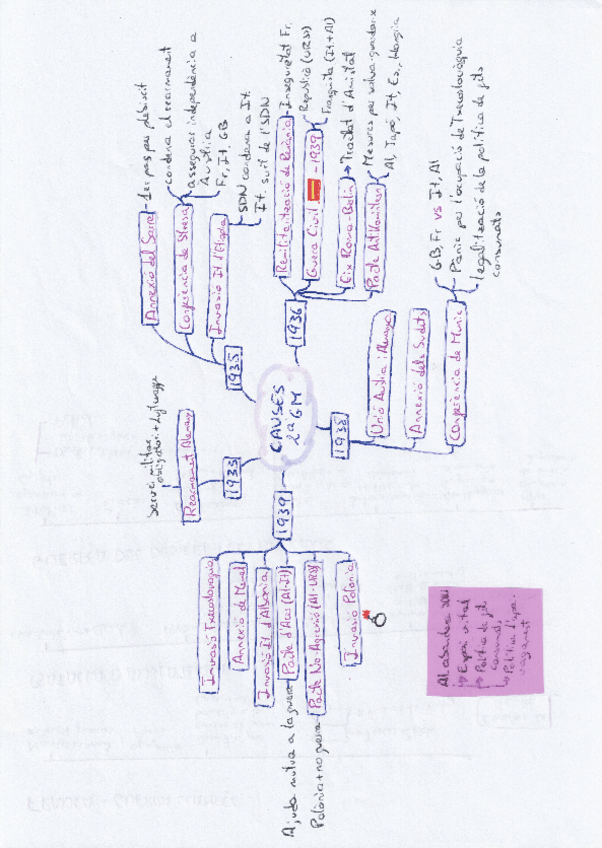 CAUSES
2a GM
1933
Rearmament Alemany
Servei militar
obligatori + Luftwaffe
1935
Annexió del Sarre - 1er pas per plebiscit
Conferència de Stresa
condemna el rearmament
assegurar independència a
Àustria
Fr, It, GB
Invasió It d'Etiòpia
SDN condemna a It.
It. surt de l'SDN
1936
Remilitarització de Renània - Inseguretat Fr.
Guerra Civil - 1939
República (URSS)
Franquista (It + Al)
Eix Roma-Berlín → Tractat d'Amistat
Pacte AntiKomintern
Mesures per salvaguardar-se
Al, Japó, It, Es, Hongria
1938
Unió Àustria i Alemanya
Annexió dels Sudets
Conferència de Munic
GB, Fr vs It, Al
Pànic per l'ocupació de Txecoslovàquia
legalització de la política de fets
consumats
1939
Invasió Txecoslovàquia
Annexió de Memel
Invasió It d'Albània
Pacte d'Acer (Al-It)
Ajuda mutua a la guerra
Pacte No-Agressió (Al-URSS)
Polònia + no guerra
Invasió Polònia
Espai vital
Política de fets
consumats